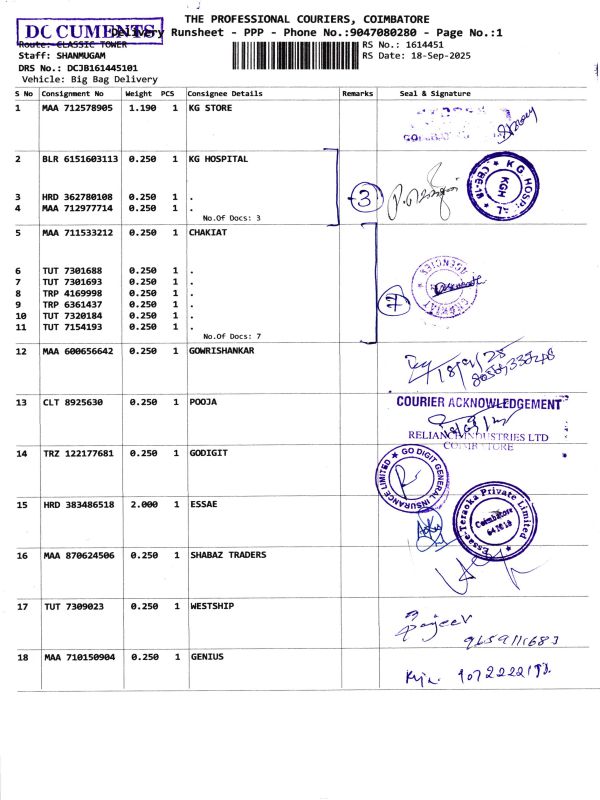 THE PROFESSIONAL COURIERS, COIMBATORE
DOCUMENTS
Delivery Runsheet - PPP - Phone No.:9047080280 - Page No.:1
Route: CLASSIC TOWER
RS No.: 1614451
Staff: SHANMUGAM
RS Date: 18-Sep-2025
DRS No.: DCJB161445101
Vehicle: Big Bag Delivery
S No Consignment No Weight PCS Consignee Details Remarks Seal & Signature
1 MAA 712578905 1.190 1 KG STORE
2 BLR 6151603113 0.250 1 KG HOSPITAL
3 HRD 362780108 0.250 1 .
4 MAA 712977714 0.250 1 .
No.Of Docs: 3
3
KG HOSPITAL
KGH
5 MAA 711533212 0.250 1 CHAKIAT
6 TUT 7301688 0.250 1 .
7 TUT 7301693 0.250 1 .
8 TRP 4169998 0.250 1 .
9 TRP 6361437 0.250 1 .
10 TUT 7320184 0.250 1 .
11 TUT 7154193 0.250 1 .
No.Of Docs: 7
7
CHAKIAT AGENCIES
12 MAA 600656642 0.250 1 GOWRISHANKAR
18/9/25
13 CLT 8925630 0.250 1 POOJA
COURIER ACKNOWLEDGEMENT
RELIANCE INDUSTRIES LTD
COIMBATORE
14 TRZ 122177681 0.250 1 GODIGIT
GO DIGIT GENERAL INSURANCE LIMITED
15 HRD 383486518 2.000 1 ESSAE
Essae-Teraoka Private Limited
Coimbatore
16 MAA 870624506 0.250 1 SHABAZ TRADERS
17 TUT 7309023 0.250 1 WESTSHIP
9659111683
18 MAA 710150904 0.250 1 GENIUS